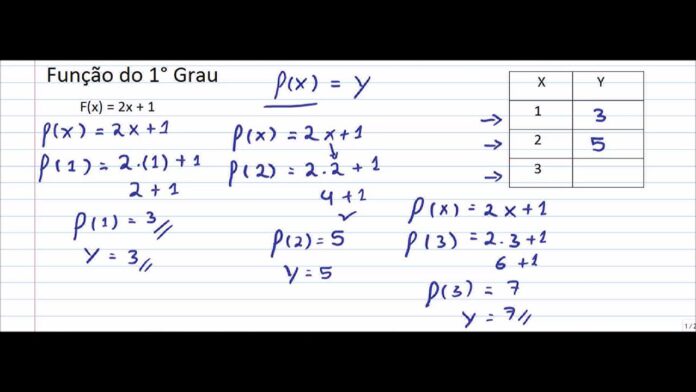 Função do 1° Grau
F(x) = 2x + 1
f(x) = Y
f(x) = 2x+1
f(1) = 2.(1) + 1
2 + 1
f(1) = 3
Y = 3
f(x) = 2x+1
f(2) = 2.2 + 1
4 + 1
f(2) = 5
Y = 5
X Y
1 3
2 5
3
f(x) = 2x+1
f(3) = 2.3+1
6 +1
f(3) = 7
Y = 7